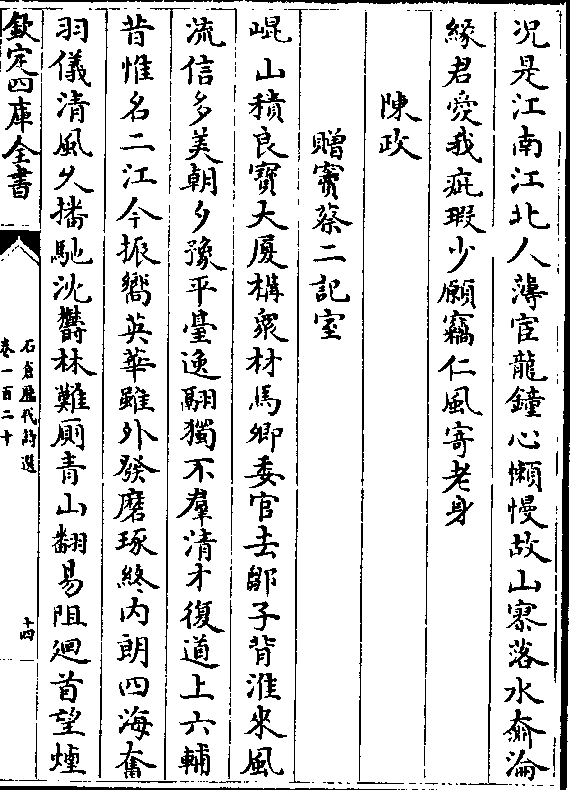 況是江南江北人薄宦龍鐘心懶慢故山寥落水奫淪
緣君愛我疵瑕少願竊仁風寄老身
陳政
贈竇蔡二記室
崐山積良寶大厦構衆材馬卿委官去鄒子背淮來風
流信多美朝夕豫平臺逸翮獨不羣清才復遒上六輔
昔惟名二江今振嚮英華雖外發磨琢終内朗四海奮
羽儀清風久播馳沈鬱林難厠青山翻易阻迴首望煙
欽定四庫全書
石倉歴代詩選
卷一百二十
十四